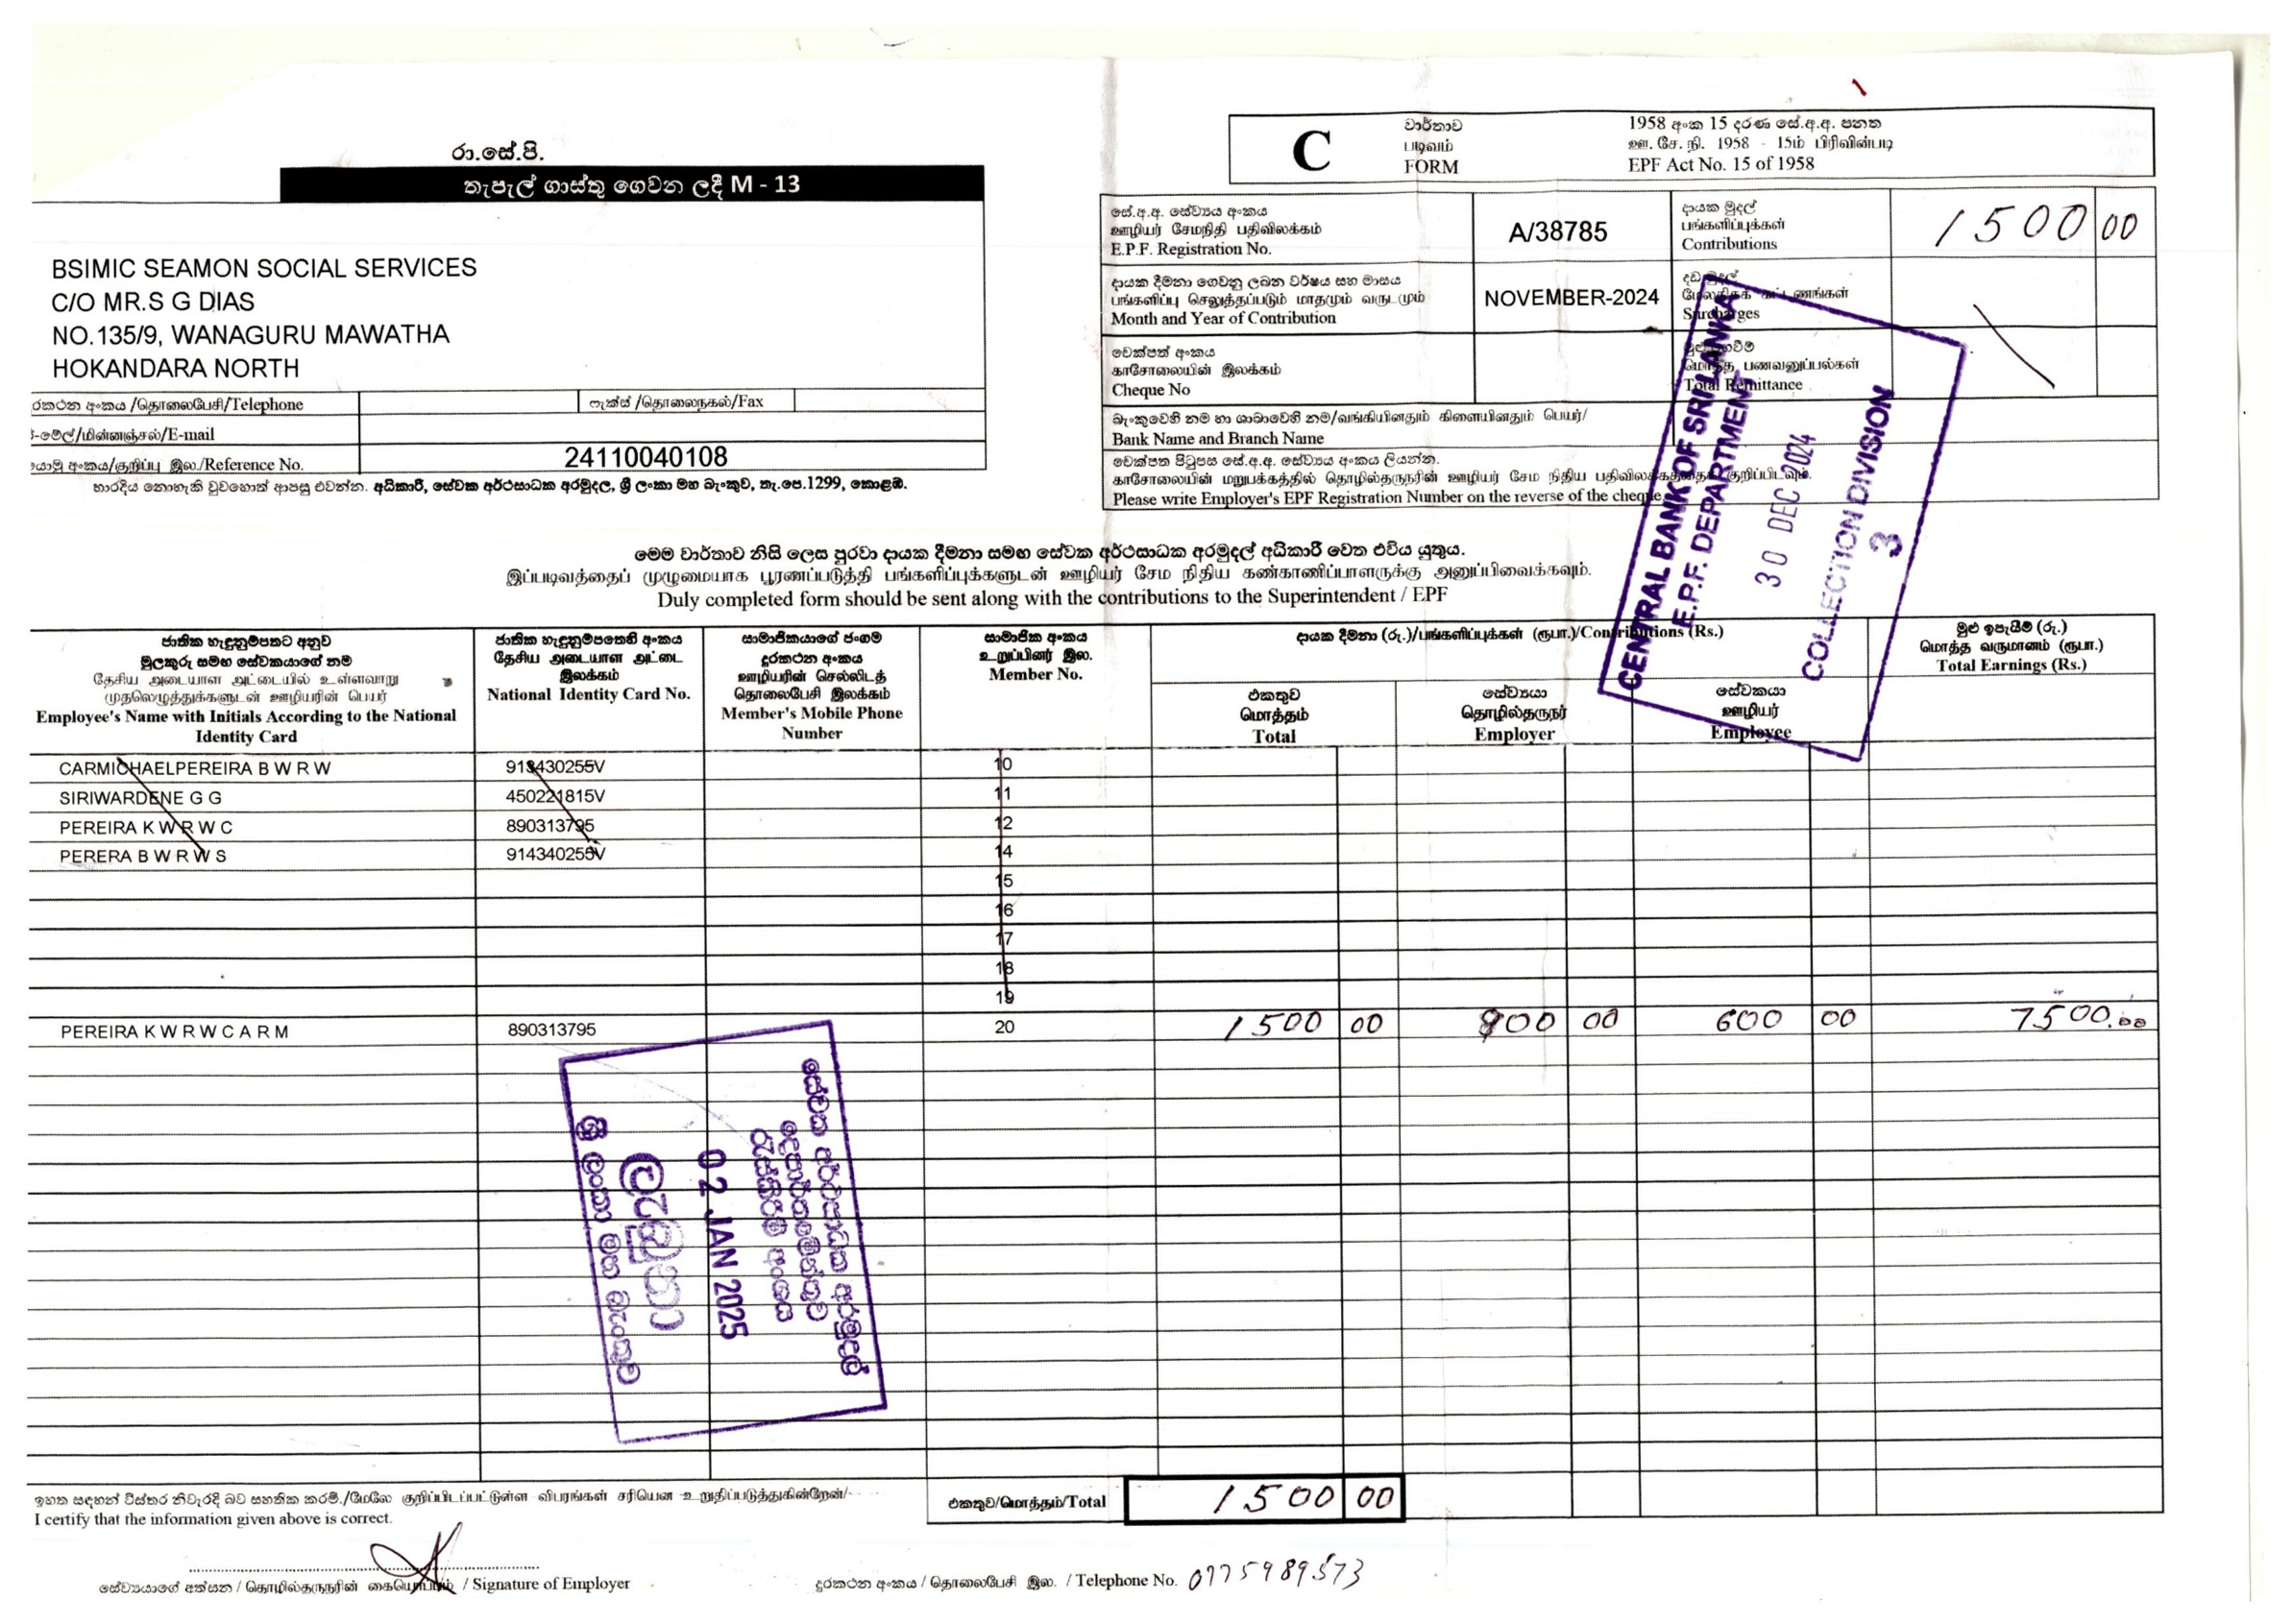 රා.සේ.පි.
තැපැල් ගාස්තු ගෙවන ලදී M - 13
BSIMIC SEAMON SOCIAL SERVICES
C/O MR.S G DIAS
NO.135/9, WANAGURU MAWATHA
HOKANDARA NORTH
රකථන අංකය /தொலைபேசி/Telephone
ෆැක්ස් /தொலைநகல்/Fax
-මේල්/மின்னஞ்சல்/E-mail
යොමු අංකය/குறிப்பு இல./Reference No.
24110040108
භාරදිය නොහැකි වුවහොත් ආපසු එවන්න. අධිකාරී, සේවක අර්ථසාධක අරමුදල, ශ්‍රී ලංකා මහ බැංකුව, තැ.පෙ.1299, කොළඹ.
C
වාර්තාව
படிவம்
FORM
1958 අංක 15 දරණ සේ.අ.අ. පනත
ஊ. சே. நி. 1958 - 15ம் பிரிவின்படி
EPF Act No. 15 of 1958
සේ.අ.අ. සේව්‍යය අංකය
ஊழியர் சேமநிதி பதிவிலக்கம்
E.P.F. Registration No.
A/38785
දායක මුදල්
பங்களிப்புக்கள்
Contributions
1500 00
දායක දීමනා ගෙවනු ලබන වර්ෂය සහ මාසය
பங்களிப்பு செலுத்தப்படும் மாதமும் வருடமும்
Month and Year of Contribution
NOVEMBER-2024
දඩ මුදල්
Surcharges
චෙක්පත් අංකය
காசோலையின் இலக்கம்
Cheque No
மொத்த பணவனுப்பல்கள்
Total Remittance
බැංකුවෙහි නම හා ශාඛාවෙහි නම/வங்கியினதும் கிளையினதும் பெயர்/
Bank Name and Branch Name
චෙක්පත පිටුපස සේ.අ.අ. සේව්‍යය අංකය ලියන්න.
காசோலையின் மறுபக்கத்தில் தொழில்தருநரின் ஊழியர் சேம நிதிய பதிவிலக்கத்தைக் குறிப்பிடவும்.
Please write Employer's EPF Registration Number on the reverse of the cheque
CENTRAL BANK OF SRI LANKA
E.P.F. DEPARTMENT
30 DEC 2024
COLLECTION DIVISION
3
මෙම වාර්තාව නිසි ලෙස පුරවා දායක දීමනා සමඟ සේවක අර්ථසාධක අරමුදල් අධිකාරී වෙත එවිය යුතුය.
இப்படிவத்தைப் முழுமையாக பூரணப்படுத்தி பங்களிப்புக்களுடன் ஊழியர் சேம நிதிய கண்காணிப்பாளருக்கு அனுப்பிவைக்கவும்.
Duly completed form should be sent along with the contributions to the Superintendent / EPF
ජාතික හැඳුනුම්පතට අනුව
මුලකුරු සමඟ සේවකයාගේ නම
தேசிய அடையாள அட்டையில் உள்ளவாறு
முதலெழுத்துக்களுடன் ஊழியரின் பெயர்
Employee's Name with Initials According to the National
Identity Card
ජාතික හැඳුනුම්පතෙහි අංකය
தேசிய அடையாள அட்டை
இலக்கம்
National Identity Card No.
සාමාජිකයාගේ ජංගම
දුරකථන අංකය
ஊழியரின் செல்லிடத்
தொலைபேசி இலக்கம்
Member's Mobile Phone
Number
සාමාජික අංකය
உறுப்பினர் இல.
Member No.
දායක දීමනා (රු.)/பங்களிப்புக்கள் (ரூபா.)/Contributions (Rs.)
එකතුව
மொத்தம்
Total
සේව්‍යයා
தொழில்தருநர்
Employer
සේවකයා
ஊழியர்
Employee
මුළු ඉපැයීම් (රු.)
மொத்த வருமானம் (ரூபா.)
Total Earnings (Rs.)
CARMICHAELPEREIRA B W R W 913430255V 10
SIRIWARDENE G G 450221815V 11
PEREIRA K W R W C 890313795 12
PERERA B W R W S 914340255V 14
15
16
17
18
19
PEREIRA K W R W C A R M 890313795 20 1500 00 900 00 600 00 7500.00
සේවක අර්ථසාධක අරමුදල්
දෙපාර්තමේන්තුව
රැස්කිරීම් අංශය
02 JAN 2025
ලැබුණා
ශ්‍රී ලංකා මහ බැංකුව
ඉහත සඳහන් විස්තර නිවැරදි බව සහතික කරමි./மேலே குறிப்பிடப்பட்டுள்ள விபரங்கள் சரியென உறுதிப்படுத்துகின்றேன்/
I certify that the information given above is correct.
එකතුව/மொத்தம்/Total 1500 00
සේව්‍යයාගේ අත්සන / தொழில்தருநரின் கையொப்பம் / Signature of Employer
දුරකථන අංකය / தொலைபேசி இல. / Telephone No. 0775989573